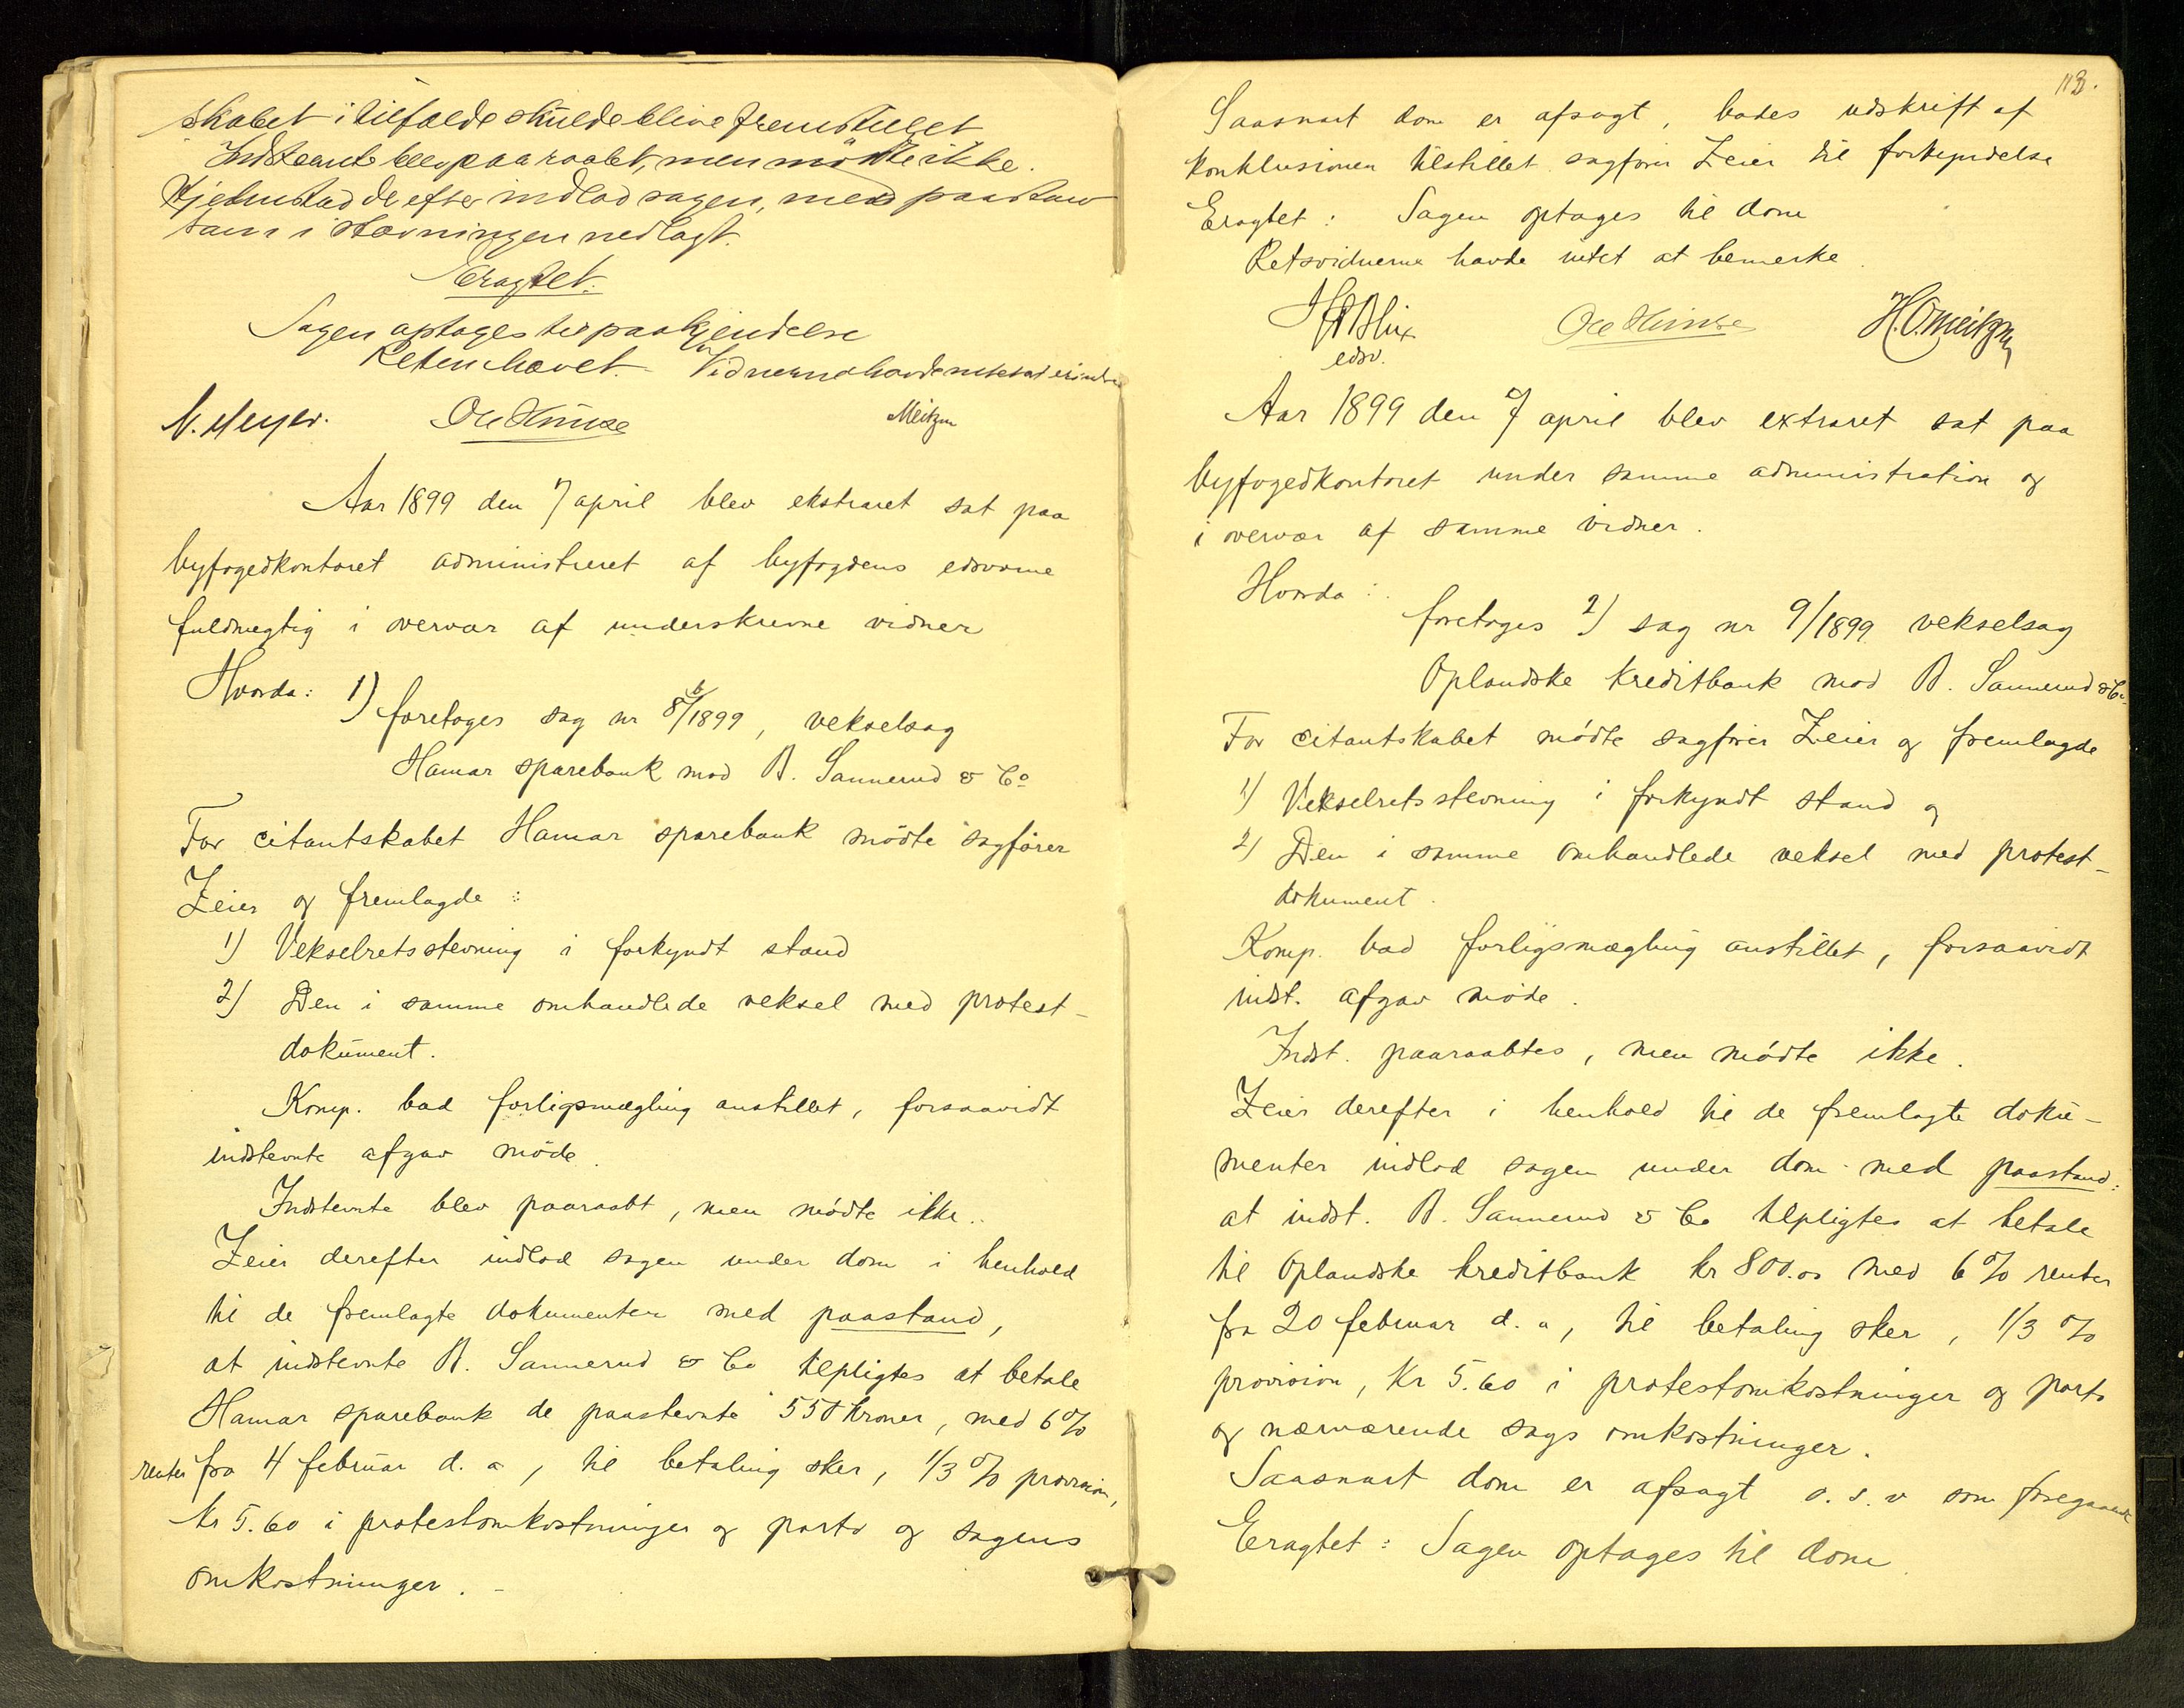 skabet i tilfælde skulde blive fremstillet
Indstevnte blev paaraabt, men mødte ikke.
Hjelmstad derefter indlod sagen, med paastand
som i stævningen nedlagt.
Eragtet:
Sagen optages til paakjendelse
Retten hævet. Vidnerne havde intet at erindre
N. Meyer. Ole Hinse Meitzen
Aar 1899 den 7 april blev ekstraret sat paa
byfogedkontoret administreret af byfogdens edsvorne
fuldmegtig i overvær af underskrevne vidner
Hvorda: 1) foretoges sag nr 8b/1899, vekselsag
Hamar sparebank mod B. Sannerud & Co
For citantskabet Hamar sparebank mødte sagfører
Zeier og fremlagde:
1) Vekselretsstevning i forkyndt stand
2) Den i samme omhandlede veksel med protest-
dokument.
Komp. bad forligsmegling anstillet, forsaavidt
indstevnte afgav møde.
Indstevnte blev paaraabt, men mødte ikke.
Zeier derefter indlod sagen under dom i henhold
til de fremlagte dokumenter med paastand,
at indstevnte B. Sannerud & Co tilpligtes at betale
Hamar sparebank de paastevnte 550 kroner, med 6%
renter fra 4 februar d. a, til betaling sker, 1/3 % provision,
kr 5.60 i protestomkostninger og porto og sagens
omkostninger. -
113.
Saasnart dom er afsagt, bades udskrift af
konklusionen tilstillet sagfører Zeier til forkyndelse
Eragtet: Sagen optages til dom
Retsvidnerne havde intet at bemerke.
Blix Ole Hinse H. O. Meitzen
edsv.
Aar 1899 den 7 april blev extraret sat paa
byfogedkontoret under samme administration og
i overvær af samme vidner.
Hvorda:
foretoges 2) sag nr 9/1899 vekselsag
Oplandske kreditbank mod B. Sannerud & Co.
For citantskabet mødte sagfører Zeier og fremlagde
1) Vekselretsstevning i forkyndt stand og
2) Den i samme omhandlede veksel med protest-
dokument.
Komp. bad forligsmægling anstillet, forsaavidt
indst. afgav møde.
Indst. paaraabtes, men mødte ikke.
Zeier derefter i henhold til de fremlagte doku-
menter indlod sagen under dom med paastand:
at indst. B. Sannerud & Co tilpligtes at betale
til Oplandske kreditbank kr 800.00 med 6% renter
fra 20 februar d. a, til betaling sker, 1/3 %
provision, Kr 5.60 i protestomkostninger og porto
og nærværende sags omkostninger.
Saasnart dom er afsagt o. s. v som foregaaende
Eragtet: Sagen optages til dom.